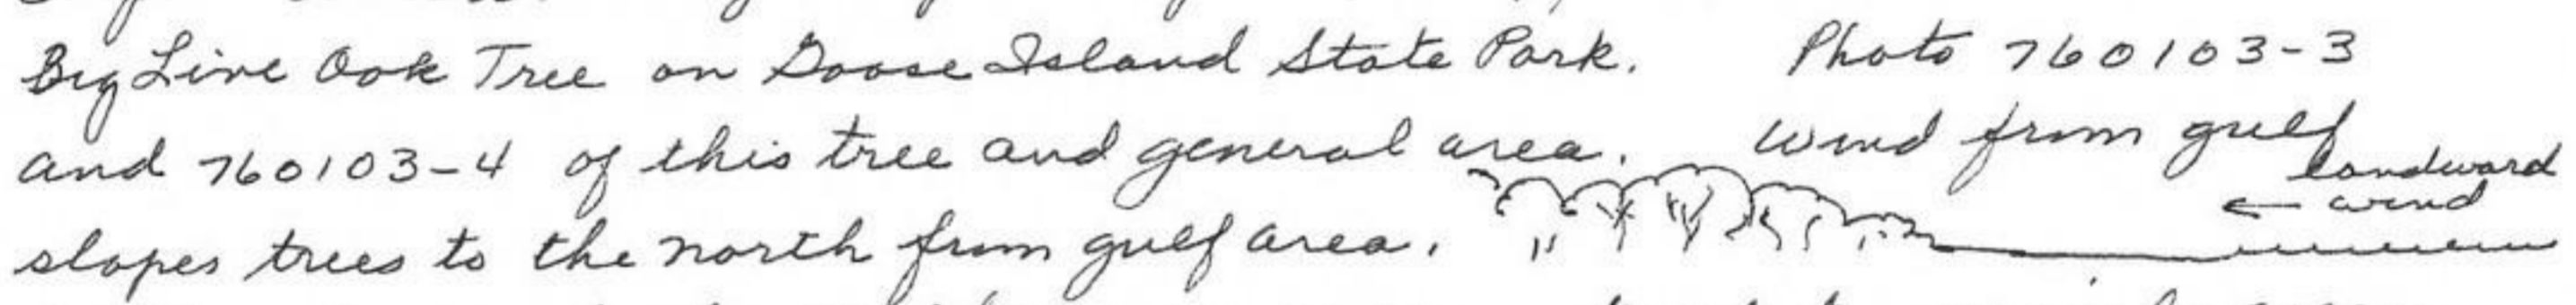 Big Live Oak Tree on Goose Island State Park. Photo 760103-3
and 760103-4 of this tree and general area. Wind from gulf
landward
← wind
slopes trees to the north from gulf area.